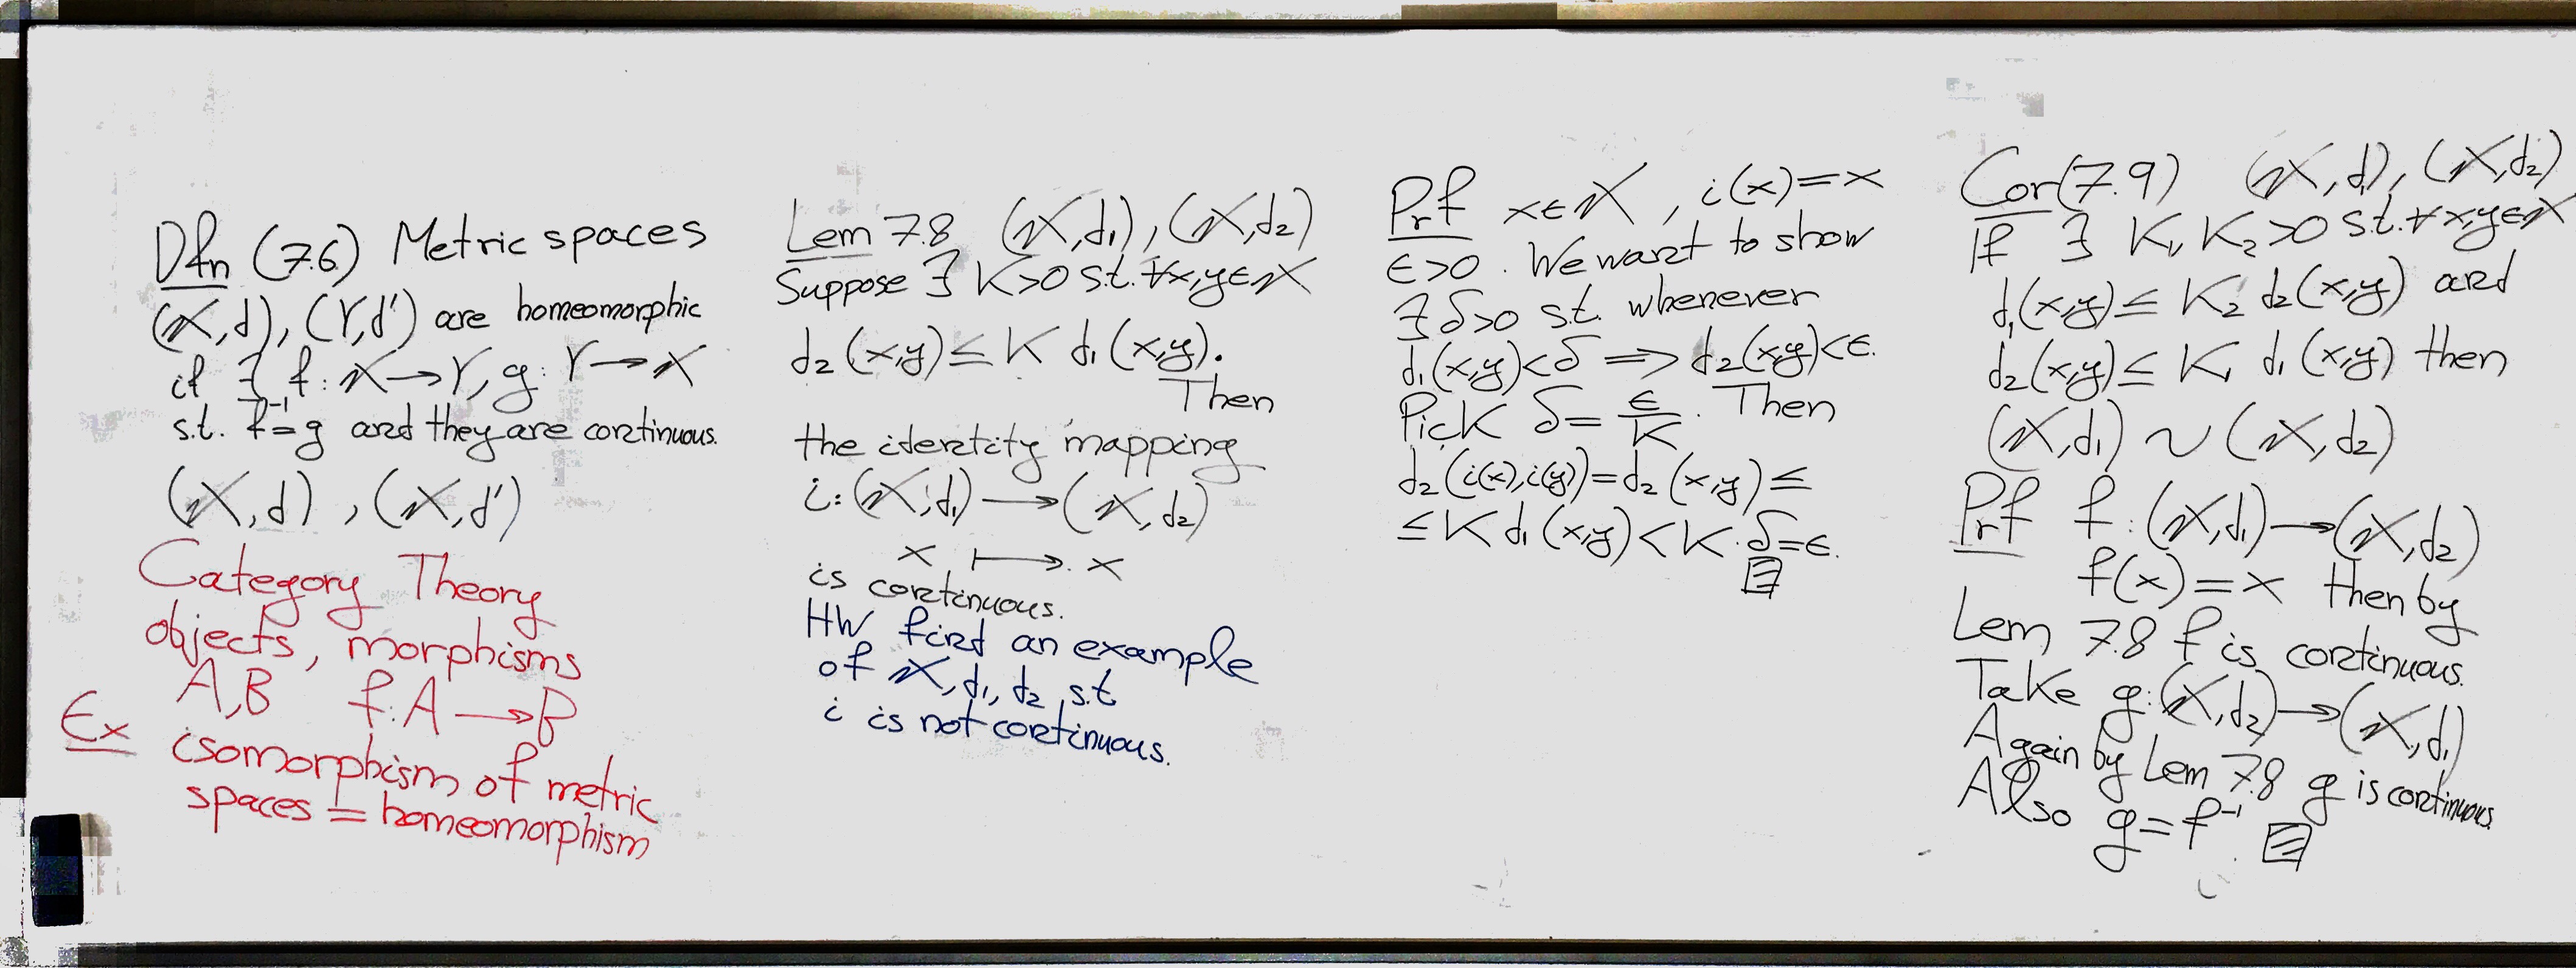 Dfn (7.6) Metric spaces
(X,d), (Y,d') are homeomorphic
if ∃ f: X→Y, g: Y→X
s.t. f⁻¹=g and they are continuous.
(X,d), (X,d')
Category Theory
objects, morphisms
A,B f:A→B
Ex isomorphism of metric
spaces = homeomorphism
Lem 7.8 (X,d₁), (X,d₂)
Suppose ∃ K>0 s.t. ∀x,y∈X
d₂(x,y)≤K d₁(x,y).
Then
the identity mapping
i:(X,d₁)→(X,d₂)
x ↦ x
is continuous.
HW find an example
of X, d₁, d₂ s.t
i is not continuous.
Prf x∈X, i(x)=x
ϵ>0. We want to show
∃ δ>0 s.t. whenever
d₁(x,y)<δ ⟹ d₂(x,y)<ϵ.
Pick δ=ϵ/K. Then
d₂(i(x),i(y))=d₂(x,y)≤
≤K d₁(x,y)<K·δ=ϵ.
Cor(7.9) (X,d₁), (X,d₂)
If ∃ K₁,K₂>0 s.t. ∀x,y∈X
d₁(x,y)≤K₂ d₂(x,y) and
d₂(x,y)≤K₁ d₁(x,y) then
(X,d₁) ~ (X,d₂)
Prf f:(X,d₁)→(X,d₂)
f(x)=x then by
Lem 7.8 f is continuous.
Take g:(X,d₂)→(X,d₁)
Again by Lem 7.8 g is continuous.
Also g=f⁻¹.